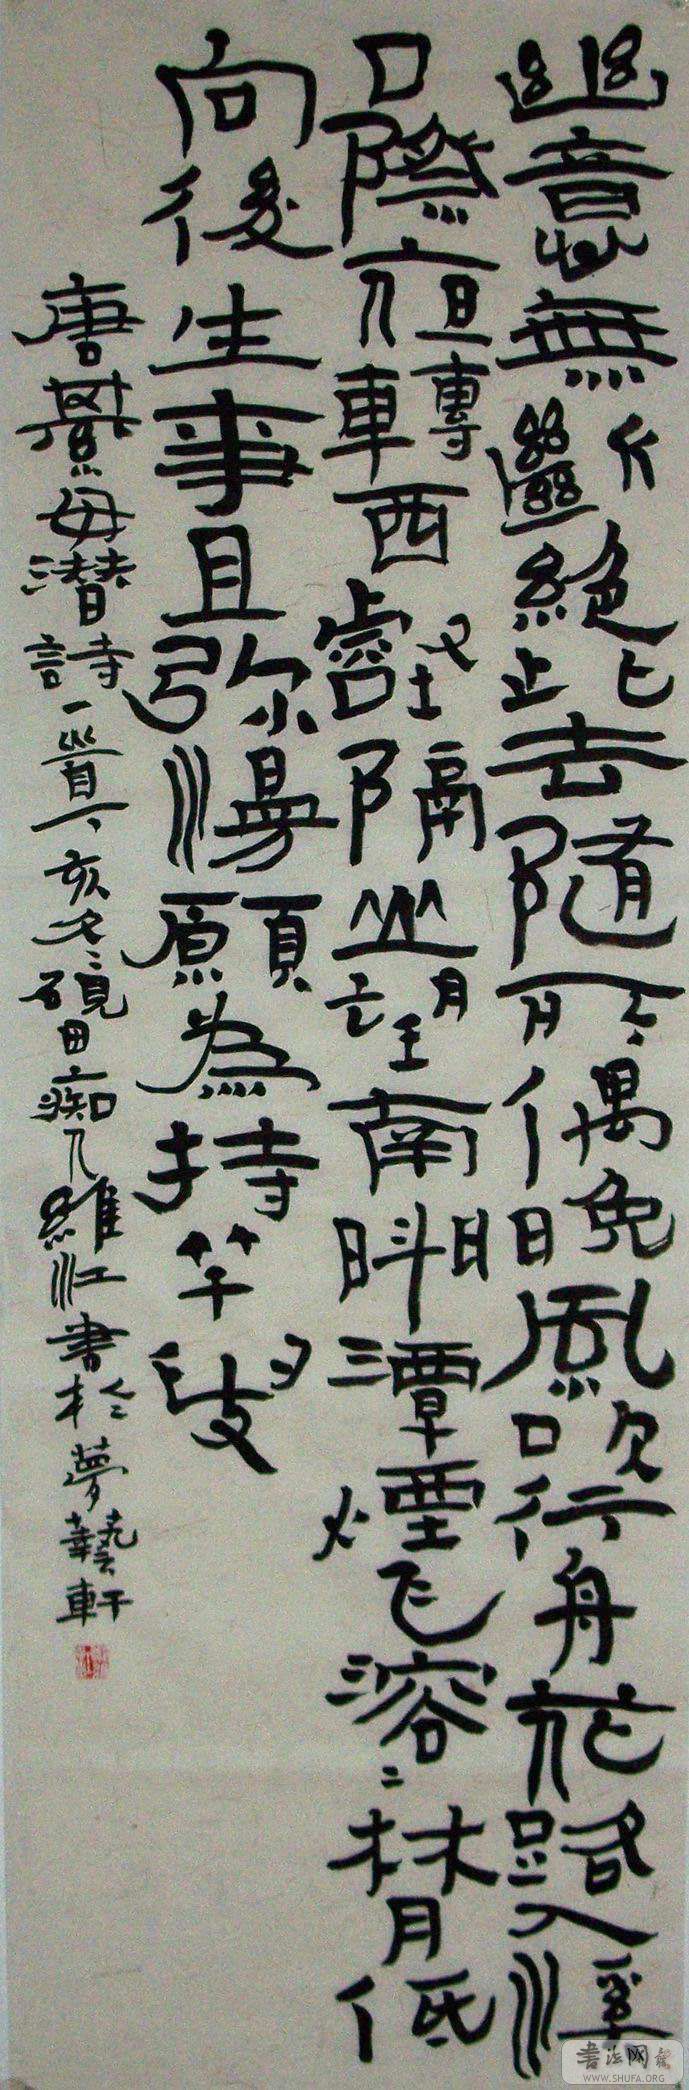 幽意無斷絕此去隨所偶晚風吹行舟花路入溪
口際夜轉西壑隔山望南斗潭煙飛溶々林月低
向後生事且弥漫願為持竿叟
唐綦毋潛詩一首丁亥冬硯田痴人維江書於夢藝軒
書法网
WWW.SHUFA.ORG